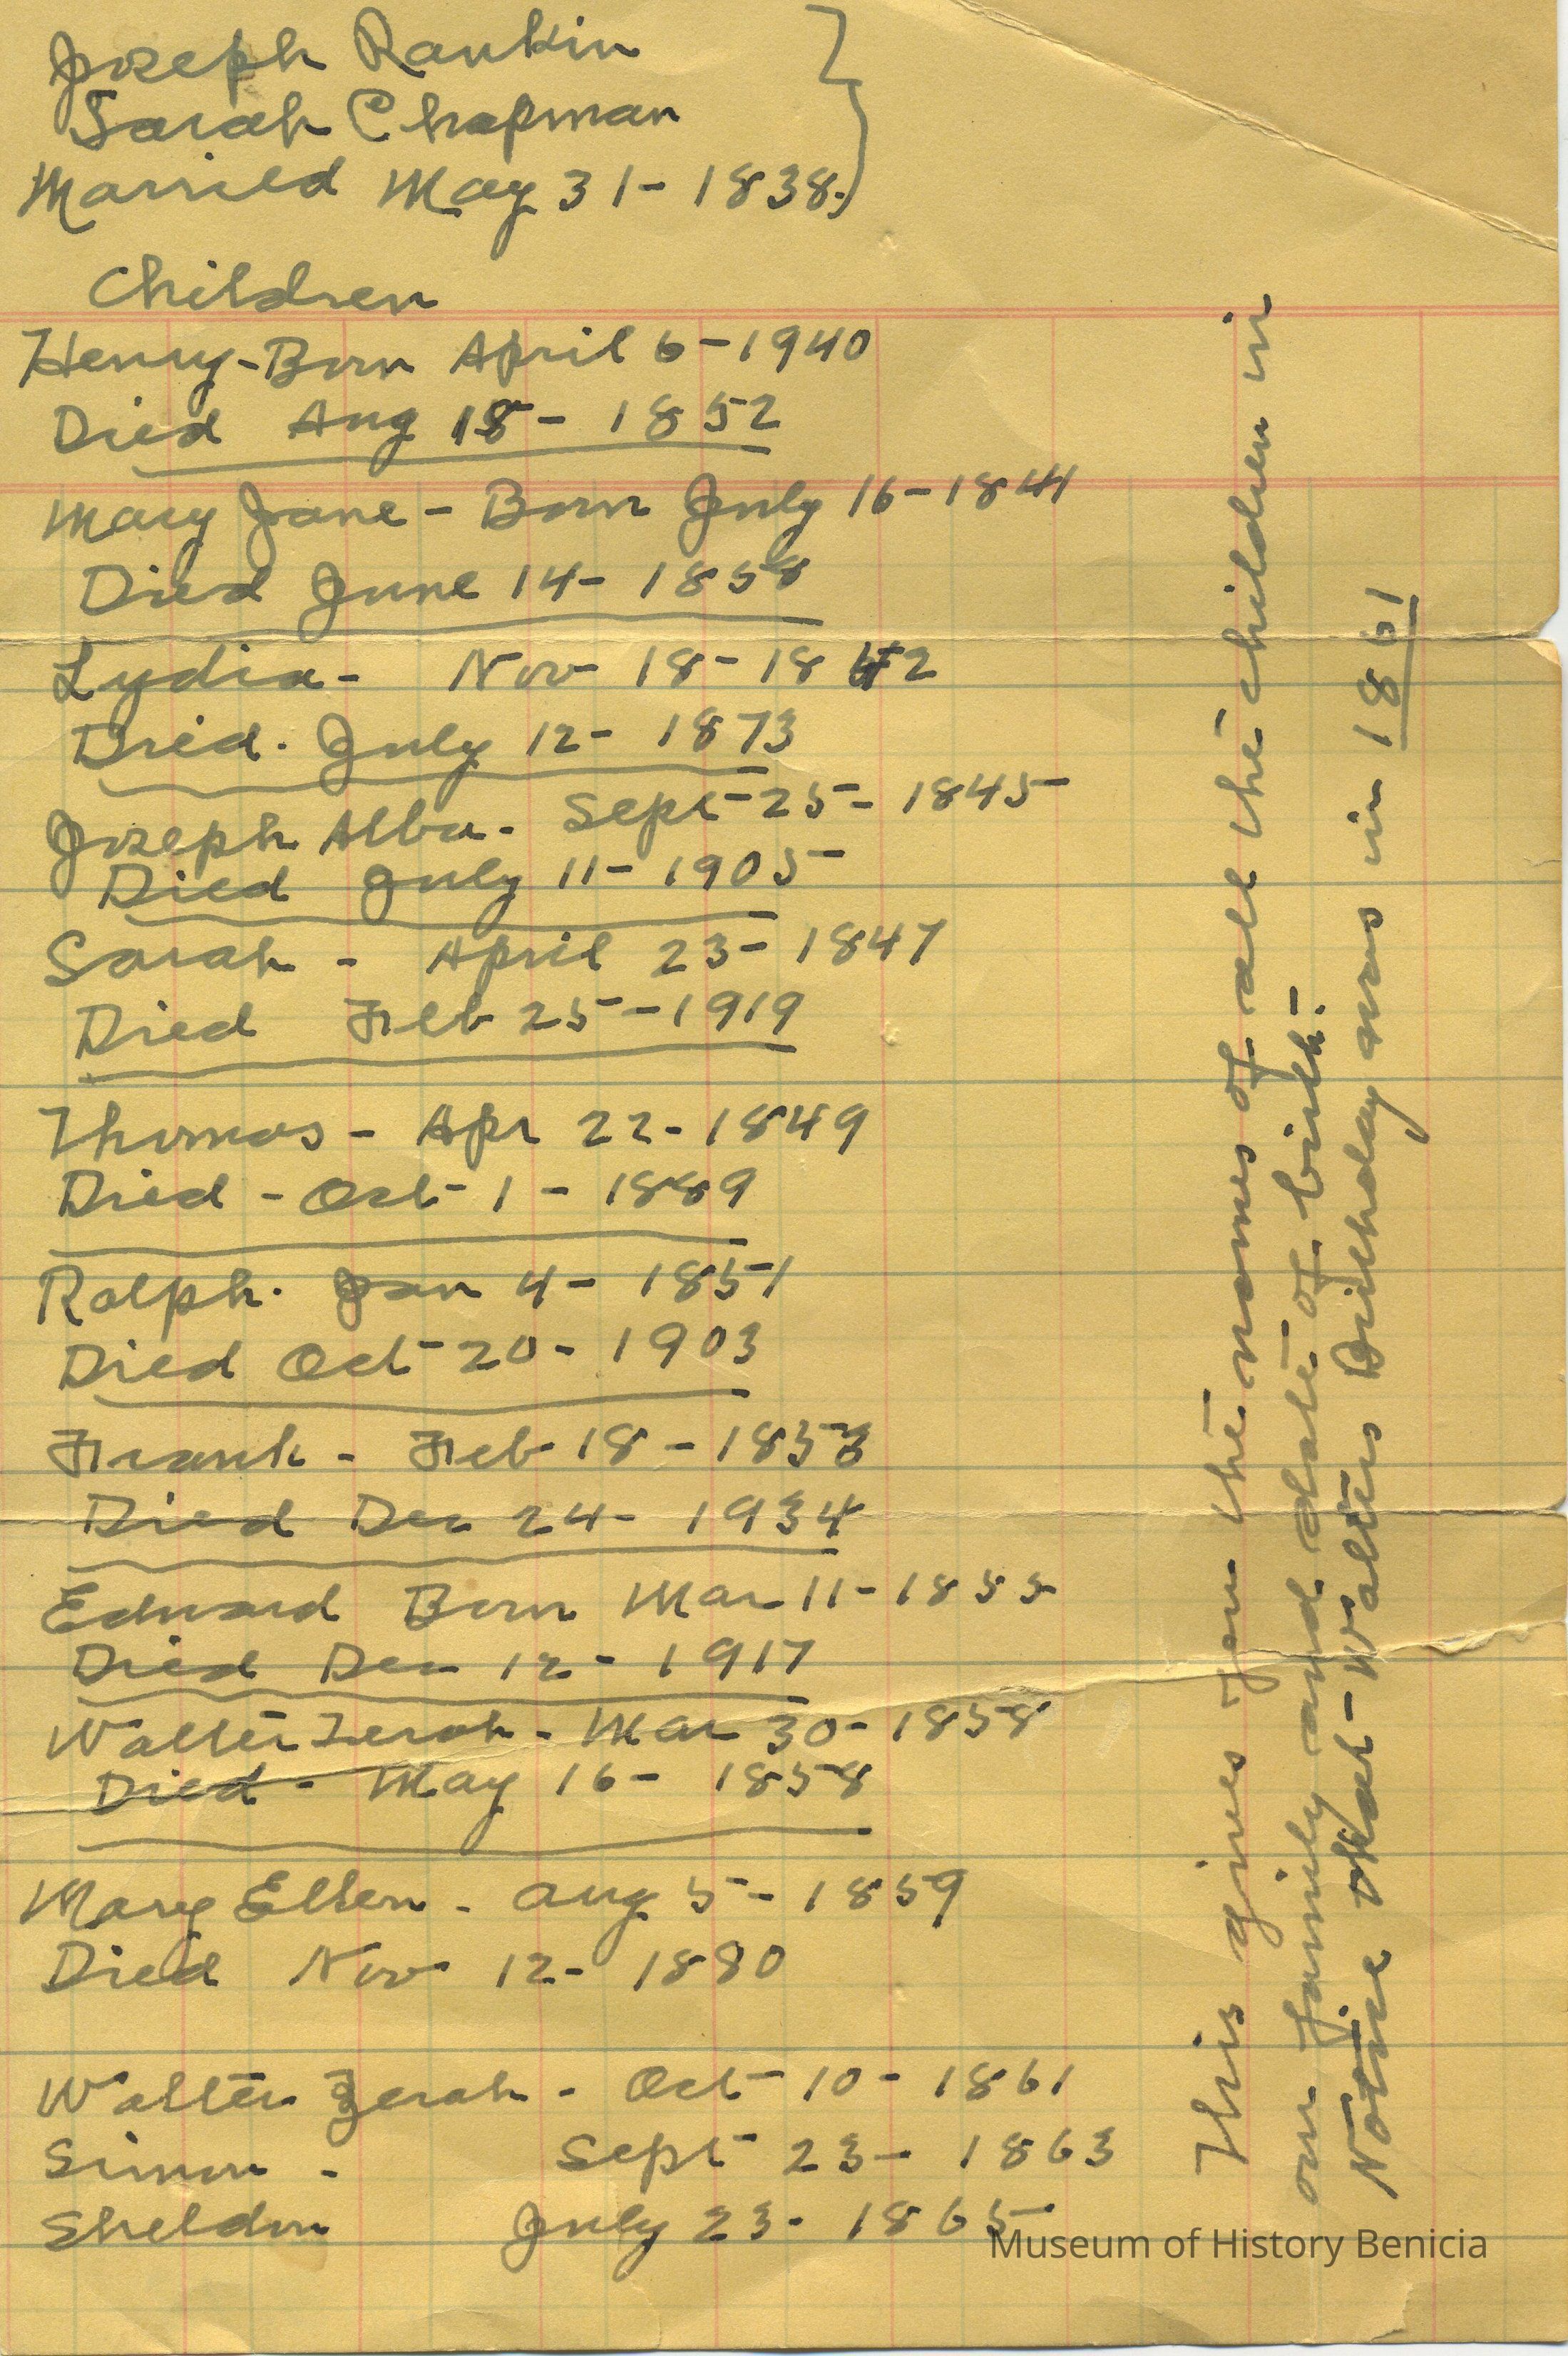 Joseph Rankin
Sarah Chapman
Married May 31-1838.
Children
Henry-Born April 6-1940
Died Aug 18-1852
Mary Jane-Born July 16-1841
Died June 14-1858
Lydia- Nov 18-1842
Died. July 12-1873
Joseph Alba. Sept 25-1845
Died July 11-1905
Sarah - April 23-1847
Died Feb 25-1919
Thomas - Apr 22-1849
Died - Oct 1-1889
Ralph. Jan 4-1851
Died Oct 20-1903
Frank - Feb 18-1853
Died Dec 24-1934
Edward Born Mar 11-1855
Died Dec 12-1917
Walter Zerah. Mar 30-1858
Died - May 16-1858
Mary Ellen. Aug 5-1859
Died Nov 12-1880
Walter Zerah - Oct 10-1861
Simon - Sept 23-1863
Sheldon July 23-1865
This gives you the names of all the children in
our family and date of birth.
Notice that-Walters Birthday was in 1861
Museum of History Benicia